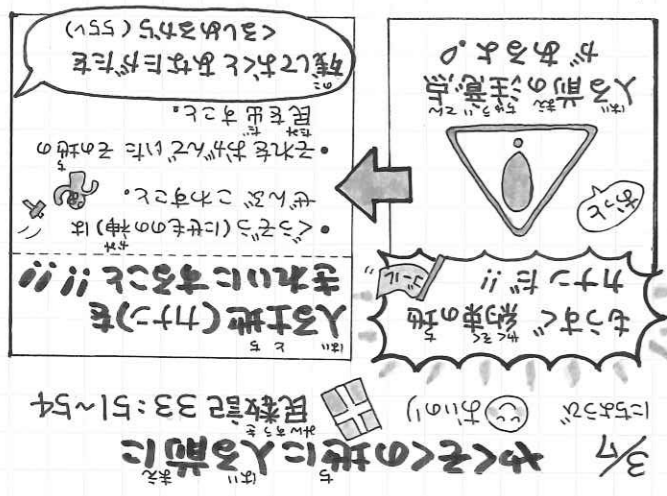 3/7 やくそくの地に入る前に
にちようび おいのり 民数記 33:51~54
もうすぐ約束の地
カナンだ!!
ゴール
おっと
入る前の注意点
があるよ!
入る土地(カナン)を
きれいにすること!!!
・ぐうぞう(にせものの神)は
ぜんぶこわすこと。
・それをおがんでいたその地の
民を出すこと。
残しておくとあなたがたを
くるしめるから(55v)